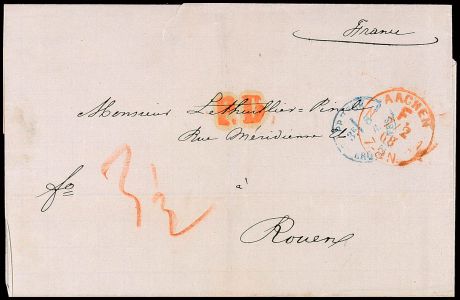 France
P.D.
Monsieur Lethuillier-Pinel
Rue Méridienne
AACHEN
F
2
7-8 N.
fo
3½
à
Rouen